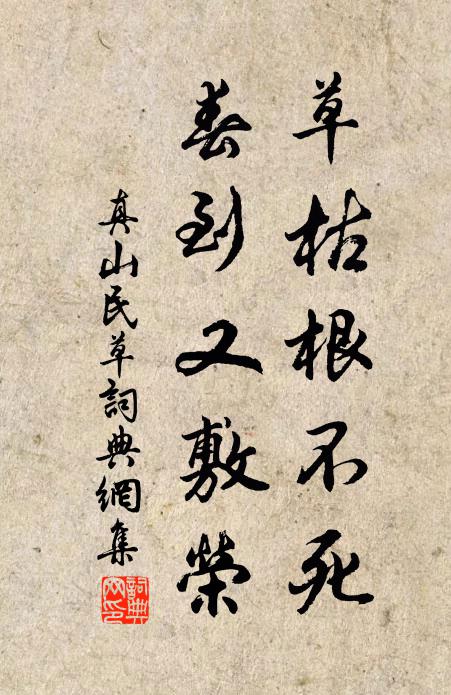 草枯根不死
春到又敷榮
真山民草詞典網集
詞典網印